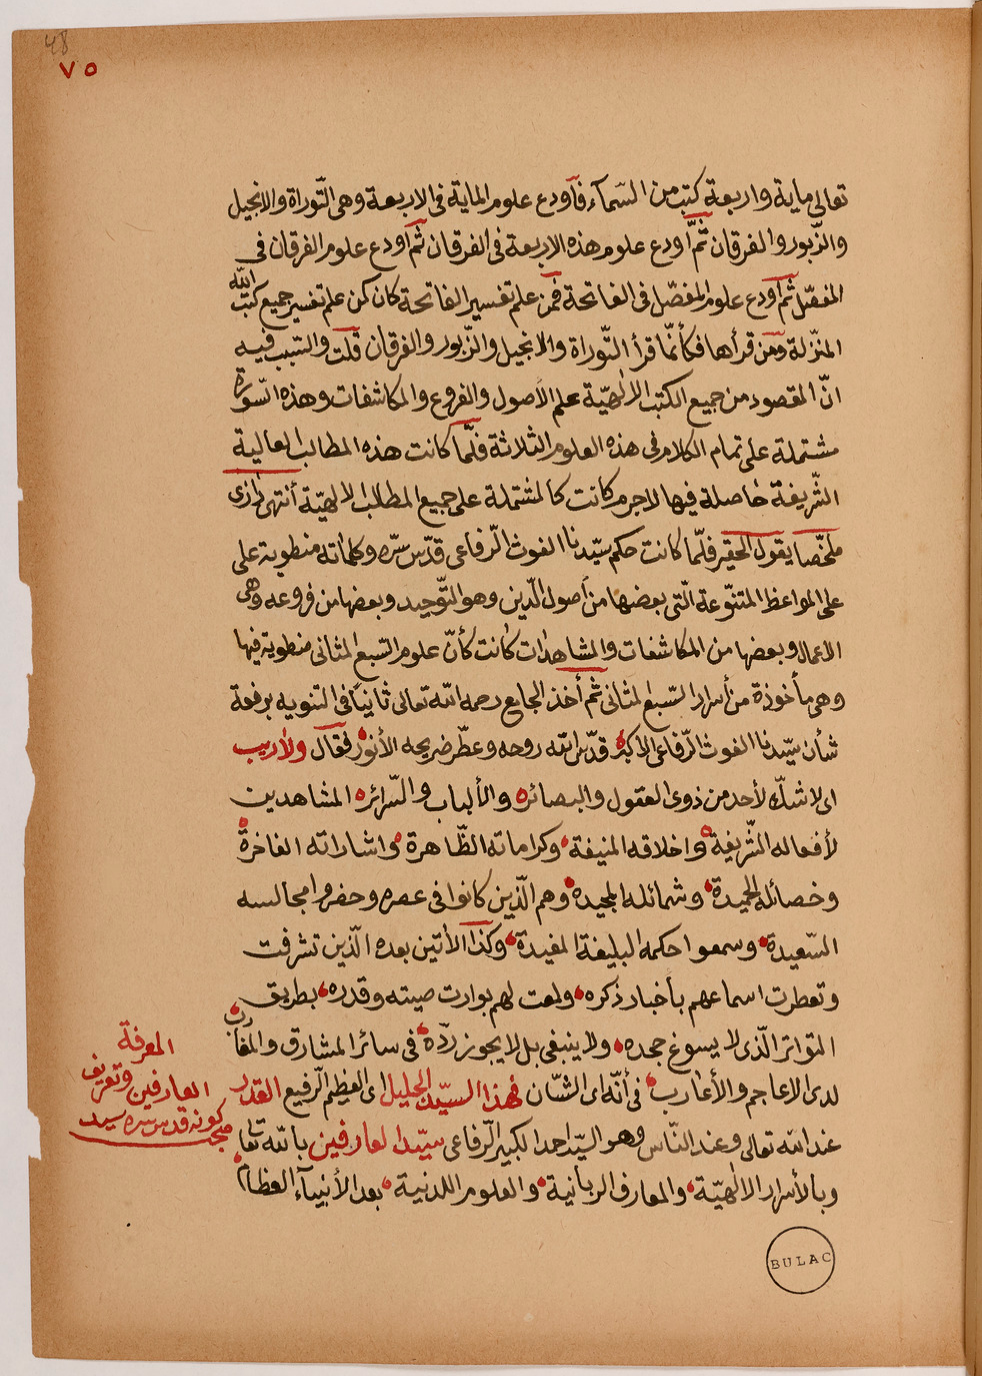 48
٧٥
تعالى ماية واربعة كتب من السّمآء فأودع علوم الماية فى الاربعة وهى التّوراة والانجيل
والزّبور والفرقان ثمّ اودع علوم هذه الاربعة فى الفرقان ثم اودع علوم الفرقان فى
المفصّل ثم اودع علوم المفصّل فى الفاتحة فمن علم تفسير الفاتحة كان كمن علم تفسير جميع كتب الله
المنزّلة ومن قرأها فكأنّما قرأ التّوراة والانجيل والزّبور والفرقان قلت والسّبب فيه
انّ المقصود من جميع الكتب الالٰهيّة علم الأصول والفروع والمكاشفات وهذه السّورة
مشتملة على تمام الكلام فى هذه العلوم الثلاثة فلمّا كانت هذه المطالب العالية
الشّريفة حاصلة فيها لاجرم كانت كالمشتملة على جميع المطالب الالهيّة أنتهى رازى
ملخّصا يقول الحقير فلمّا كانت حكم سيّدنا الغوث الرّفاعى قدّس سرّه وكلماته منطوية على
على المواعظ المتنوّعة الّتى بعضها من أصول الدّين وهو التّوحيد وبعضها من فروعه وهى
الاعمال وبعضها من المكاشفات والمشاهدات كانت كأنّ علوم السّبع المثانى منطوية فيها
وهى مأخوذة من أسرار السّبع المثانى ثم أخذ الجامع رحمه الله تعالى ثانيًا فى التنويه برفعة
شأن سيّدنا الغوث الرّفاعى الاكبر قدّس الله روحه وعطّر ضريحه الأنور فقال ولاريب
اى لاشكّ لأحد من ذوى العقول والبصائر والألباب والسّرائر المشاهدين
لأفعاله الشّريفة واخلاقه المنيفة وكراماته الظّاهرة واشاراته الفاخرة
وخصائله الحميدة وشمائله المجيدة وهم الّذين كانوا فى عصره وحضروا مجالسه
السّعيدة وسمعوا حكمه البليغة المفيدة وكذا الأتين بعده الّذين تشرفت
وتعطرت اسماعهم بأخبار ذكره ولمعت لهم بوارت صيته وقدره بطريق
التواتر الّذى لا يسوغ جحده ولا ينبغى بل لا يجوز ردّه فى سائر المشارق والمغارب
لدى الاعاجم والأعارب فى أنّه اى الشّان فهذا السيّد الجليل اى العظم الرفيع القدر
عند الله تعالى وعند النّاس وهو السيّد احمد الكبير الرّفاعى سيّد العارفين بالله تعا
وبالأسرار الالٰهيّة والمعارف الربانية والعلوم اللدنية بعد الأنبيآء العظام
المعرفة
العارفين وتعريف
كونه قدس سره سيد
BULAC